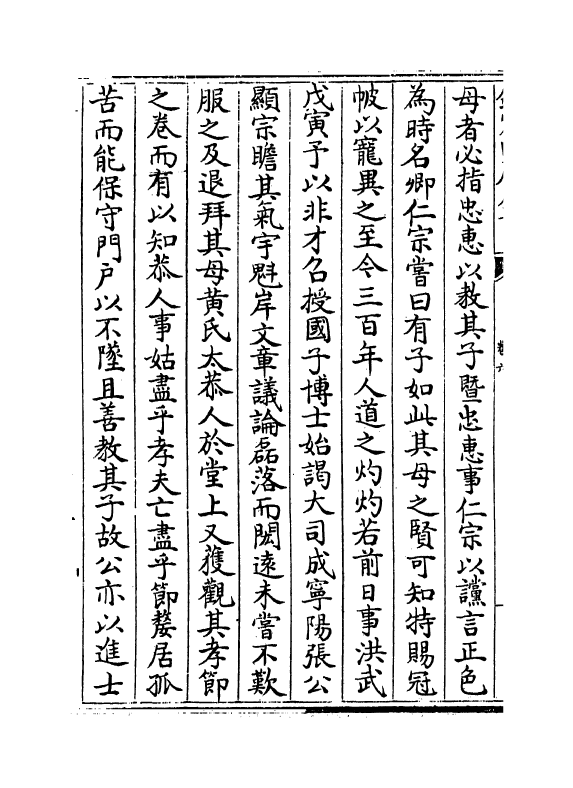 母者必指忠惠以教其子暨忠惠事仁宗以讜言正色
為時名卿仁宗嘗曰有子如此其母之賢可知特賜冠
帔以寵異之至今三百年人道之灼灼若前日事洪武
戊寅予以非才召授國子博士始謁大司成寧陽張公
顯宗瞻其氣宇魁岸文章議論磊落而閎遠未嘗不歎
服之及退拜其母黄氏太恭人於堂上又獲觀其孝節
之卷而有以知恭人事姑盡乎孝夫亡盡乎節嫠居孤
苦而能保守門户以不墜且善教其子故公亦以進士